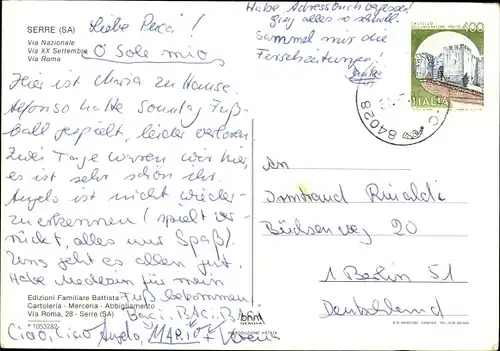 SERRE (SA)
Via Nazionale
Via XX Settembre
Via Roma
Liebe Pexa!
O Sole mio
Hier ist Maria zu Hause.
Alfonso hatte Sonntag Fuß-
ball gespielt leider verloren
Zwei Tage waren wir hier,
es ist sehr schön ihr.
Angelo ist nicht wieder-
zuerkennen (spielt ver-
rückt, alles nur Spaß!
Uns geht es allen gut.
Habe Medizin für mein
Fuß bekommen!
Baci. BACi. BA
Ciao, Ciao Angelo, MARIO +
Edizioni Familiare Battista
Cartoleria - Merceria - Abbigliamento
Via Roma, 28 - Serre (SA)
P 1053282
Habe Adressbuch vergessen
ging alles so schnell.
Sammel mir die
Fernsehzeitungen!
danke
CASTELLO
400
ITALIA
84028
An
Irmtraud Rinaldi
Büchsenweg 20
1 Berlin 51
Deutschland
bhm
GENOVA
RIPRODUZIONE VIETATA